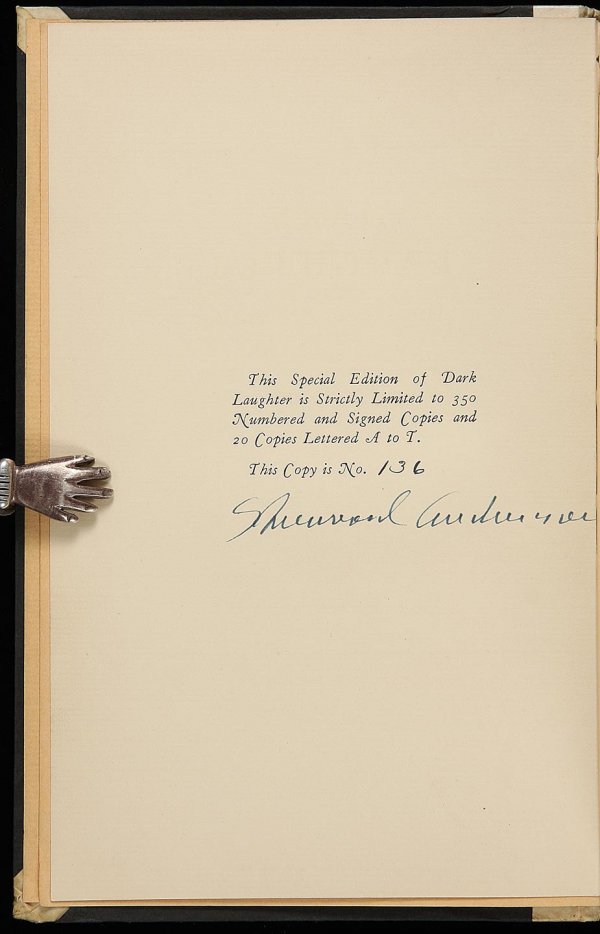 This Special Edition of Dark
Laughter is Strictly Limited to 350
Numbered and Signed Copies and
20 Copies Lettered A to T.
This Copy is No. 136
Sherwood Anderson